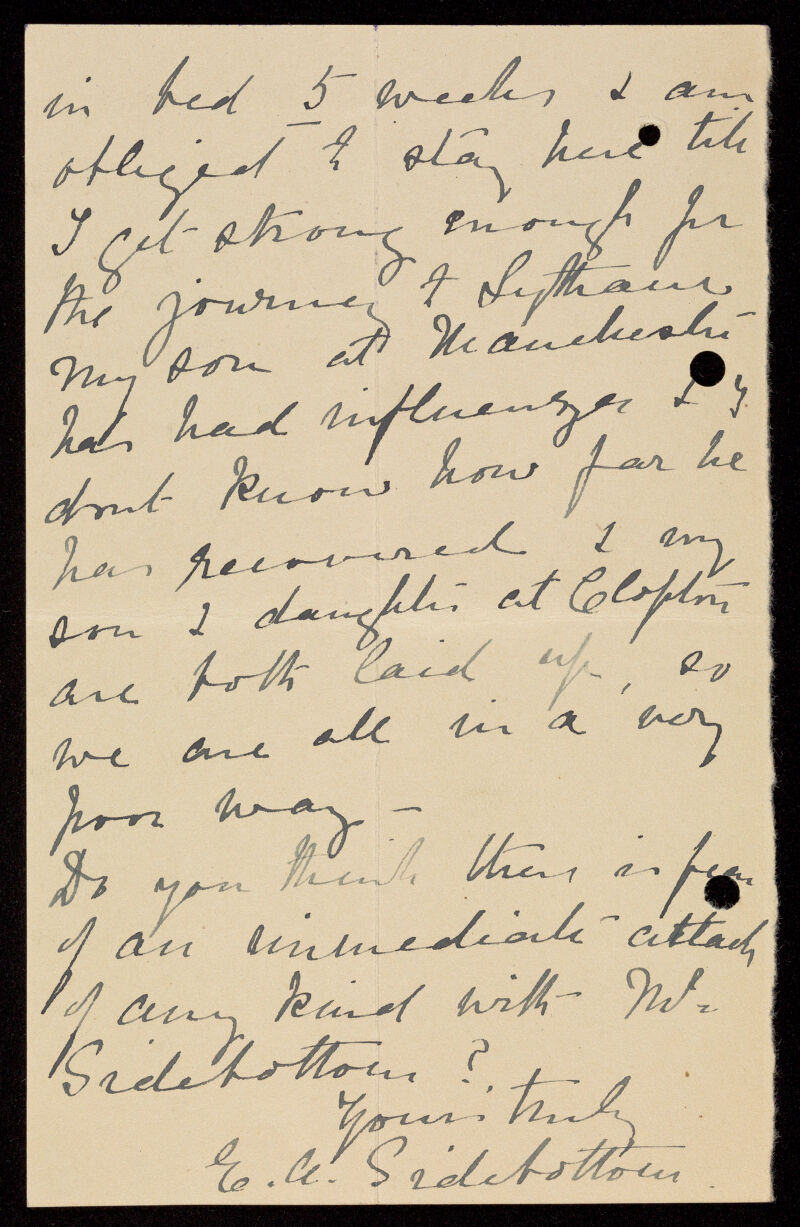 in bed 5 weeks & am
obliged to stay here till
I get strong enough for
the journey to Lytham
My son at Manchester
has had influenza & I
dont know how far he
has recovered & my
son & daughter at Clopton
are both laid up, so
we are all in a very
poor way –
Do you think there is fear
of an immediate attack
of any kind with Mr
Sidebottom?
Yours truly
E. A. Sidebottom.